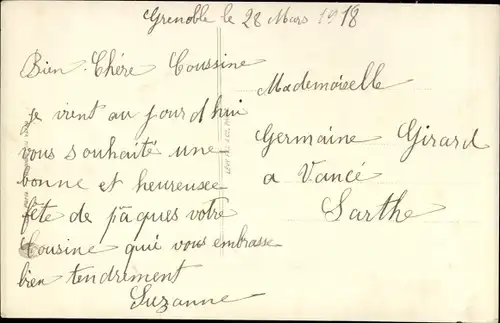 Grenoble le 28 Mars 1918
Bien Chére Coussine
je vient au jourd hui
vous souhaité une
bonne et heureuse
fête de pâques votre
Cousine qui vous embrasse
bien tendrement
Suzanne
Mademoiselle
Germaine Girard
a Vancé
Sarthe